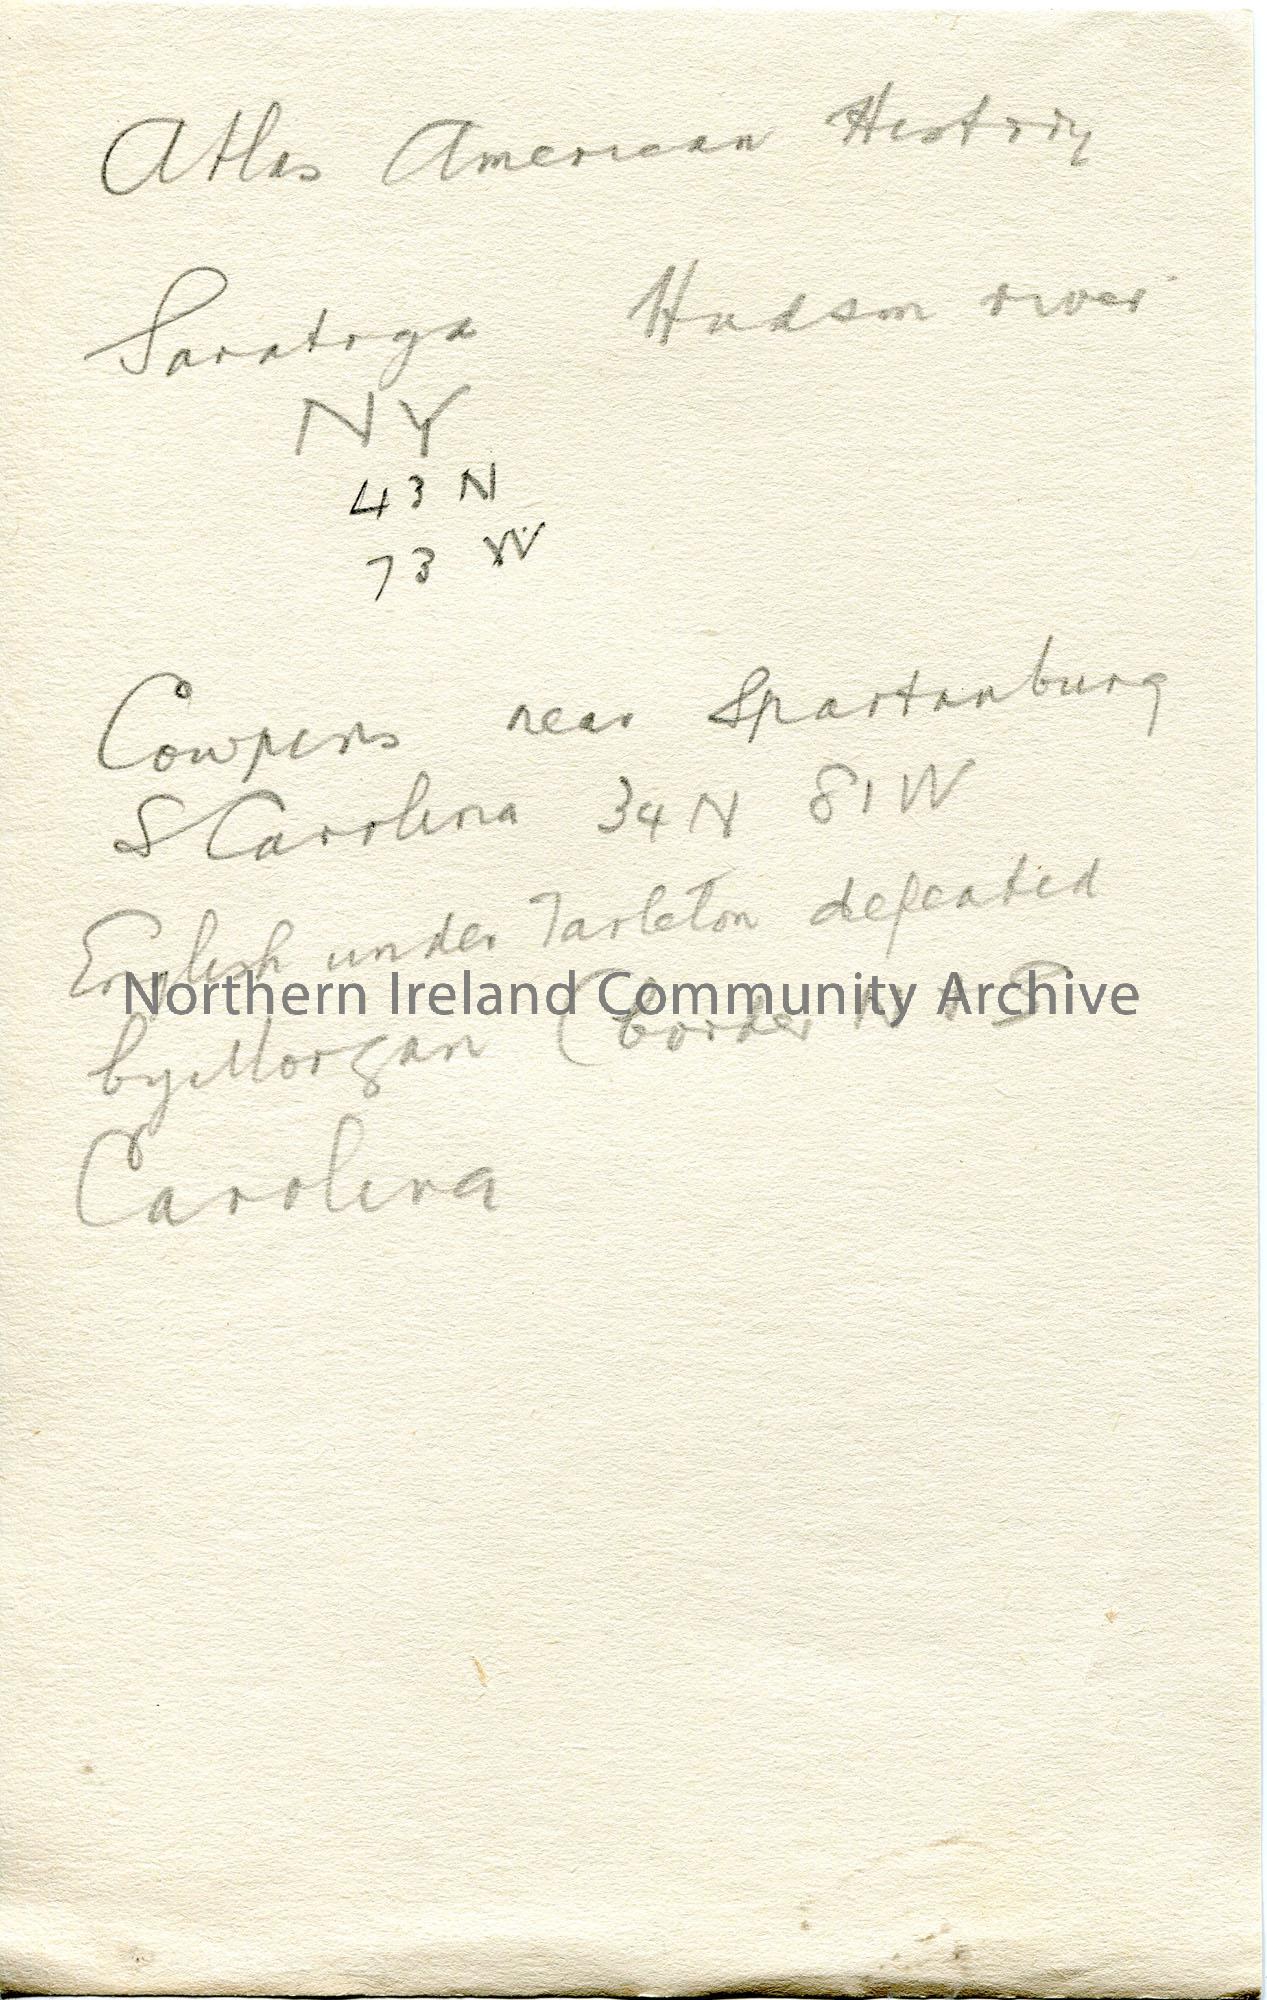 Atlas American History
Saratoga Hudson river
NY
43 N
73 W
Cowpens near Spartanburg
S Carolina 34 N 81 W
English under Tarleton defeated
Northern Ireland Community Archive
by Morgan (border N + S
Carolina